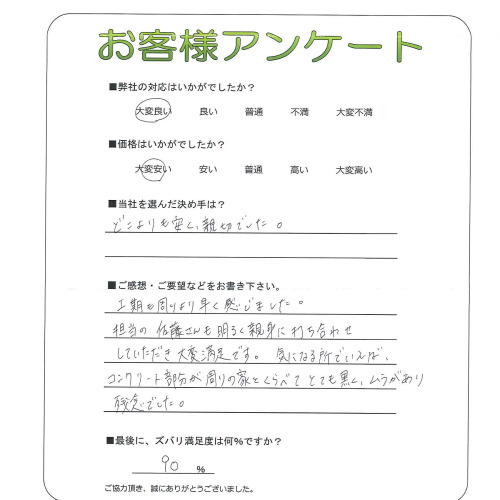 お客様アンケート
■弊社の対応はいかがでしたか？
大変良い 良い 普通 不満 大変不満
■価格はいかがでしたか？
大変安い 安い 普通 高い 大変高い
■当社を選んだ決め手は？
どこよりも安く、親切でした。
■ご感想・ご要望などをお書き下さい。
工期も周りより早く感じました。
担当の佐藤さんも明るく親身に打ち合わせ
していただき大変満足です。気になる所でいえば、
コンクリート部分が周りの家とくらべてとても黒く、ムラがあり
残念でした。
■最後に、ズバリ満足度は何%ですか？
90 %
ご協力頂き、誠にありがとうございました。